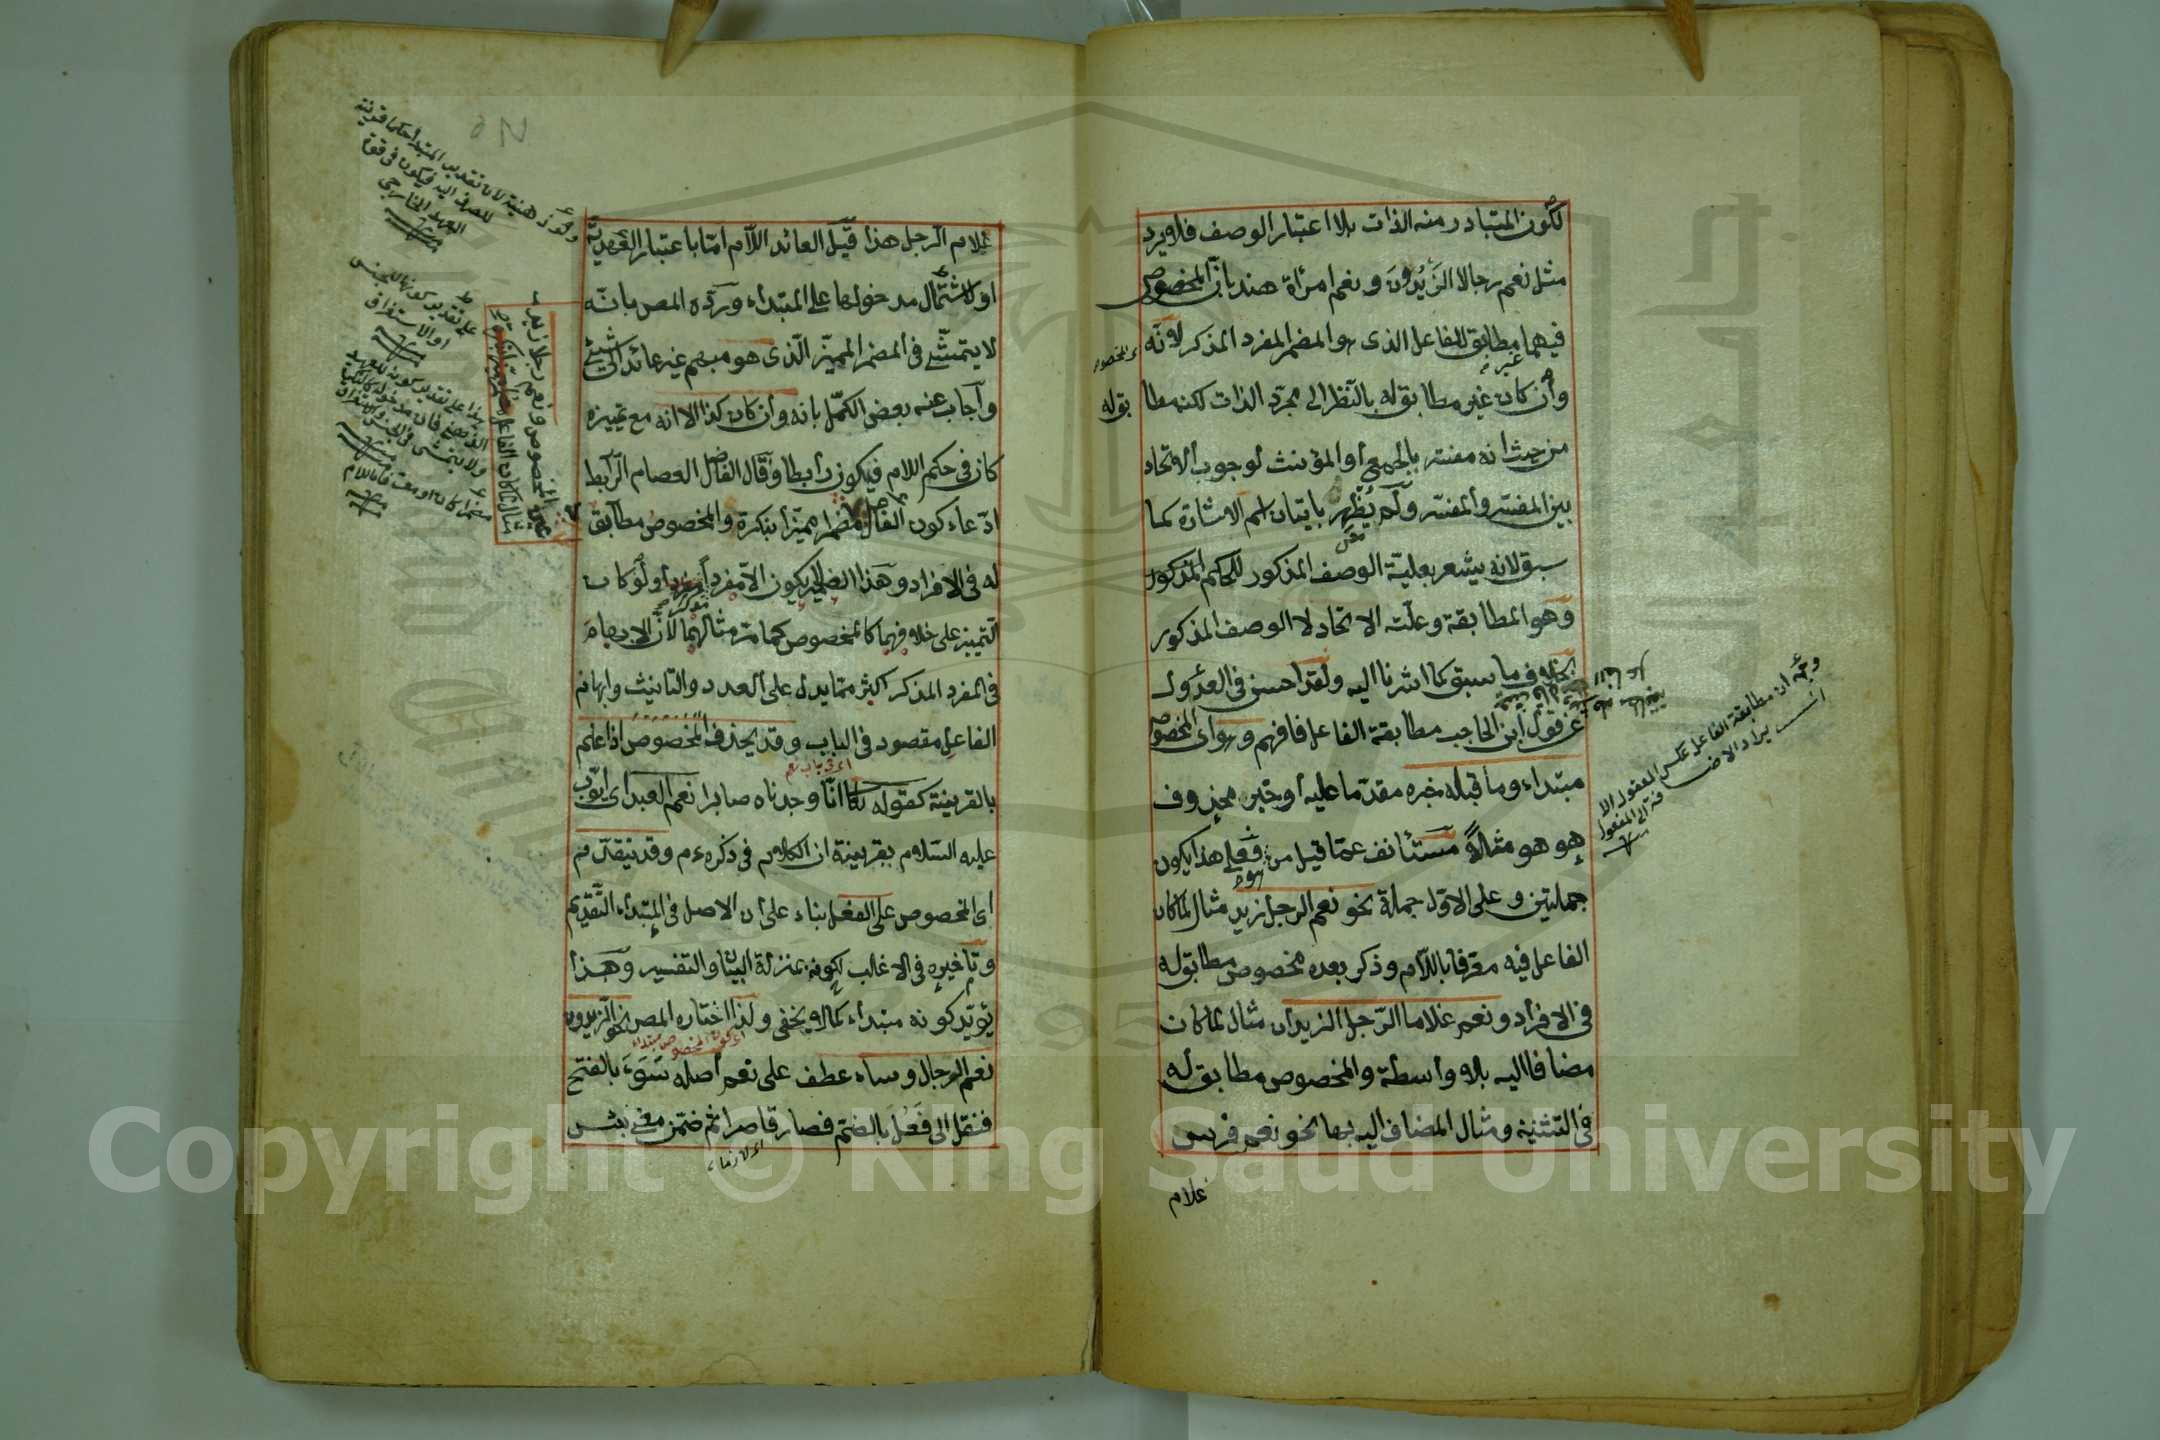 لكون المتبادر منه الذات بلا اعتبار الوصف فلا يرد
مثل نعم رجالا الزيدون ونعم امرأة هند بان المخصوص
فيهما مطابق للفاعل الذى هو المضمر المفرد المذكر لانه
وان كان غير مطابق له بالنظر الى مجرد الذات لكنه مطا
بق له
من حيث انه مفسر بالجمع او المؤنث لوجوب الاتحاد
بين المفسر والمفسر ولم يظهر باتيان اسم الاشارة كما
سبق لانه يشعر بعلية الوصف المذكور للحكم المذكور
وهو المطابقة وعلته الاتحاد لا الوصف المذكور
بخلاف ما سبق كما اشرنا اليه ولقد احسن فى العدول
عن قول ابن الحاجب مطابقة الفاعل فافهم وهو اى المخصوص
مبتداء وما قبله خبره مقدما عليه او خبر محذوف
هو هو مثلا مستأنف عمّا قيل من هو فعلى هذا يكون
جملتين وعلى الاول جملة نحو نعم الرجل زيد مثال لما كان
الفاعل فيه معرفا باللام وذكر بعده مخصوص مطابق له
فى الافراد ونعم غلاما الرجل الزيدان مثال لما كان
مضافا اليه بلا واسطة والمخصوص مطابق له
فى التثنية ومثال المضاف اليه بها نحو نعم فرس
غلام
وجهه ان مطابقة الفاعل عكس المفعول الا
غلام الرجل هذا قيل العائد اللام امّا باعتبار العهدية
او لاشتمال مدخولها على المبتداء ورده المص بانّه
لا يتمشى فى المضمر المميز الّذى هو مبهم غير عائد الى شيئ
واجاب عنه بعض الكمل بانه وان كان كذا الا انه مع تمييزه
كان فى حكم اللام فيكون رابطا وقال الفاضل العصام الرابط
ادعاء كون الفاعل مضمرا مميزا بنكرة والمخصوص مطابق
له فى الافراد وهذا الضمير يكون الا مفردا ولو كان
التمييز على خلافهما كالمخصوص كما مر مثالهما لان الابهام
فى المفرد المذكر اكثر مما يدل على العدد والتانيث وابهام
الفاعل مقصود فى الباب وقد يحذف المخصوص اذا علم
اى فى باب نعم
بالقرينة كقوله تعالى انّا وجدناه صابرا نعم العبد اى ايّوب
عليه السلام بقرينة ان الكلام فى ذكره عم وقد يتقدم
اى المخصوص على الفعل بناء على ان الاصل فى المبتداء التقديم
وتأخيره فى الاغلب لكونه بمنزلة البيان والتفسير وهذا
يؤيد كونه مبتداء كما لا يخفى ولذا اختاره المص نحو الزيدون
اى كون المخصوص مبتداء
نعم الرجال وساء عطف على نعم اصله سَوَءَ بالفتح
فنقل الى فَعُلَ بالضم فصار قاصرا ثم ضمن معنى بئس
اى لازما
على تقدير كونها للجنس
او الاستغراق
Copyright © King Saud University